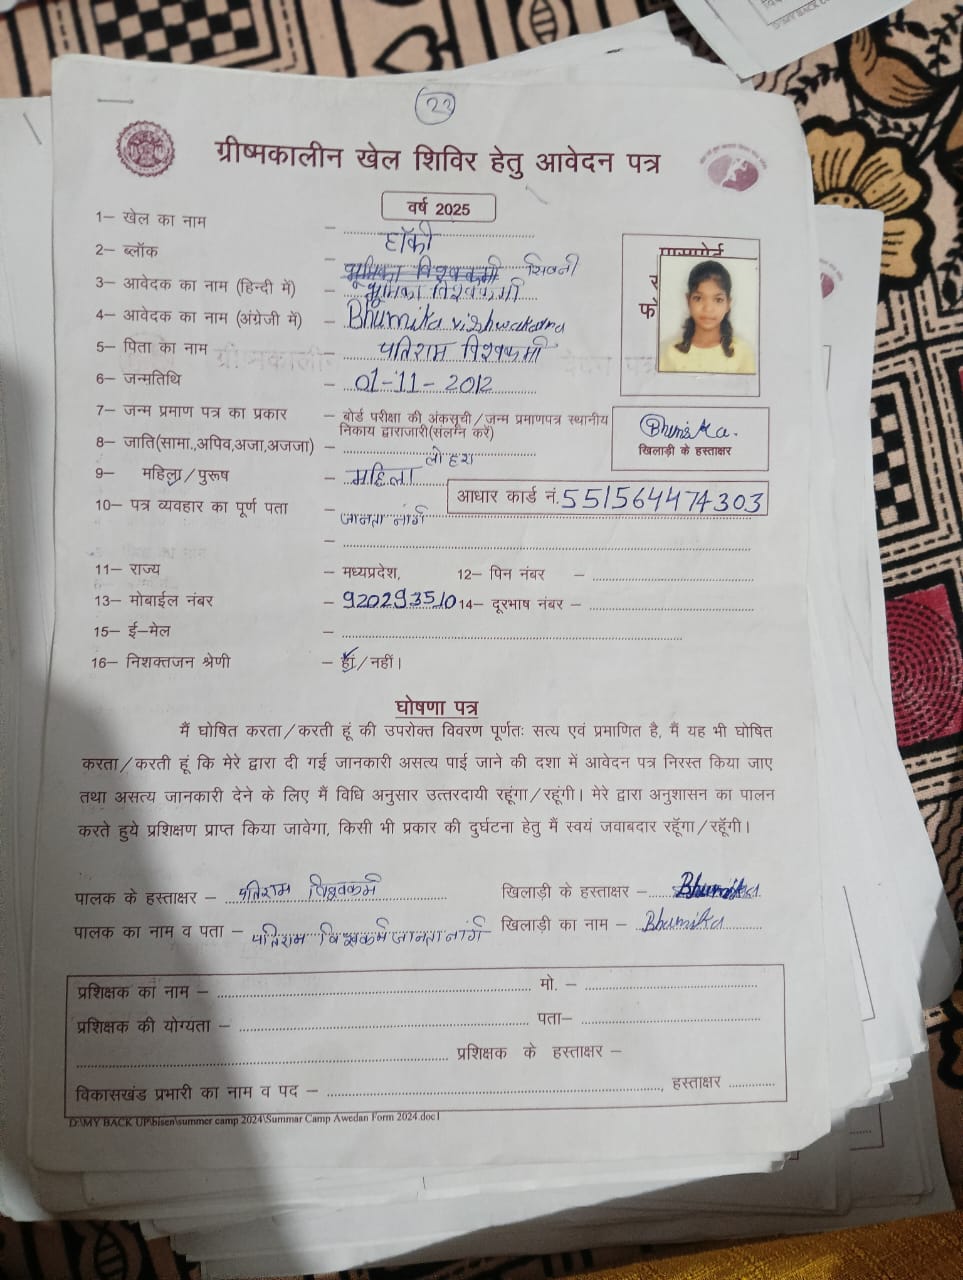 23
ग्रीष्मकालीन खेल शिविर हेतु आवेदन पत्र
वर्ष 2025
1– खेल का नाम – हॉकी
2– ब्लॉक – सिवनी
3– आवेदक का नाम (हिन्दी में) – भूमिका विश्वकर्मा
4– आवेदक का नाम (अंग्रेजी में) – Bhumika vishwakarma
5– पिता का नाम – पतिराम विश्वकर्मा
6– जन्मतिथि – 01-11-2012
7– जन्म प्रमाण पत्र का प्रकार – बोर्ड परीक्षा की अंकसूची/जन्म प्रमाणपत्र स्थानीय
निकाय द्वाराजारी(संलग्न करें)
Bhumika.
खिलाड़ी के हस्ताक्षर
8– जाति(सामा.,अपिव,अजा,अजजा) –
9– महिला/पुरूष – महिला
आधार कार्ड नं. 551564474303
10– पत्र व्यवहार का पूर्ण पता –
11– राज्य – मध्यप्रदेश, 12– पिन नंबर –
13– मोबाईल नंबर – 920293510 14– दूरभाष नंबर –
15– ई–मेल –
16– निशक्तजन श्रेणी – हां/नहीं।
घोषणा पत्र
मैं घोषित करता/करती हूं की उपरोक्त विवरण पूर्णतः सत्य एवं प्रमाणित है, मैं यह भी घोषित
करता/करती हूं कि मेरे द्वारा दी गई जानकारी असत्य पाई जाने की दशा में आवेदन पत्र निरस्त किया जाए
तथा असत्य जानकारी देने के लिए मैं विधि अनुसार उत्तरदायी रहूंगा/रहूंगी। मेरे द्वारा अनुशासन का पालन
करते हुये प्रशिक्षण प्राप्त किया जावेगा, किसी भी प्रकार की दुर्घटना हेतु मैं स्वयं जवाबदार रहूँगा/रहूँगी।
पालक के हस्ताक्षर – पतिराम विश्वकर्मा खिलाड़ी के हस्ताक्षर – Bhumika
पालक का नाम व पता – पतिराम विश्वकर्मा खिलाड़ी का नाम – Bhumika
प्रशिक्षक का नाम – मो. –
प्रशिक्षक की योग्यता – पता–
प्रशिक्षक के हस्ताक्षर –
विकासखंड प्रभारी का नाम व पद – , हस्ताक्षर
D:\MY BACK UP\bisen\summer camp 2024\Summar Camp Awedan Form 2024.doc1